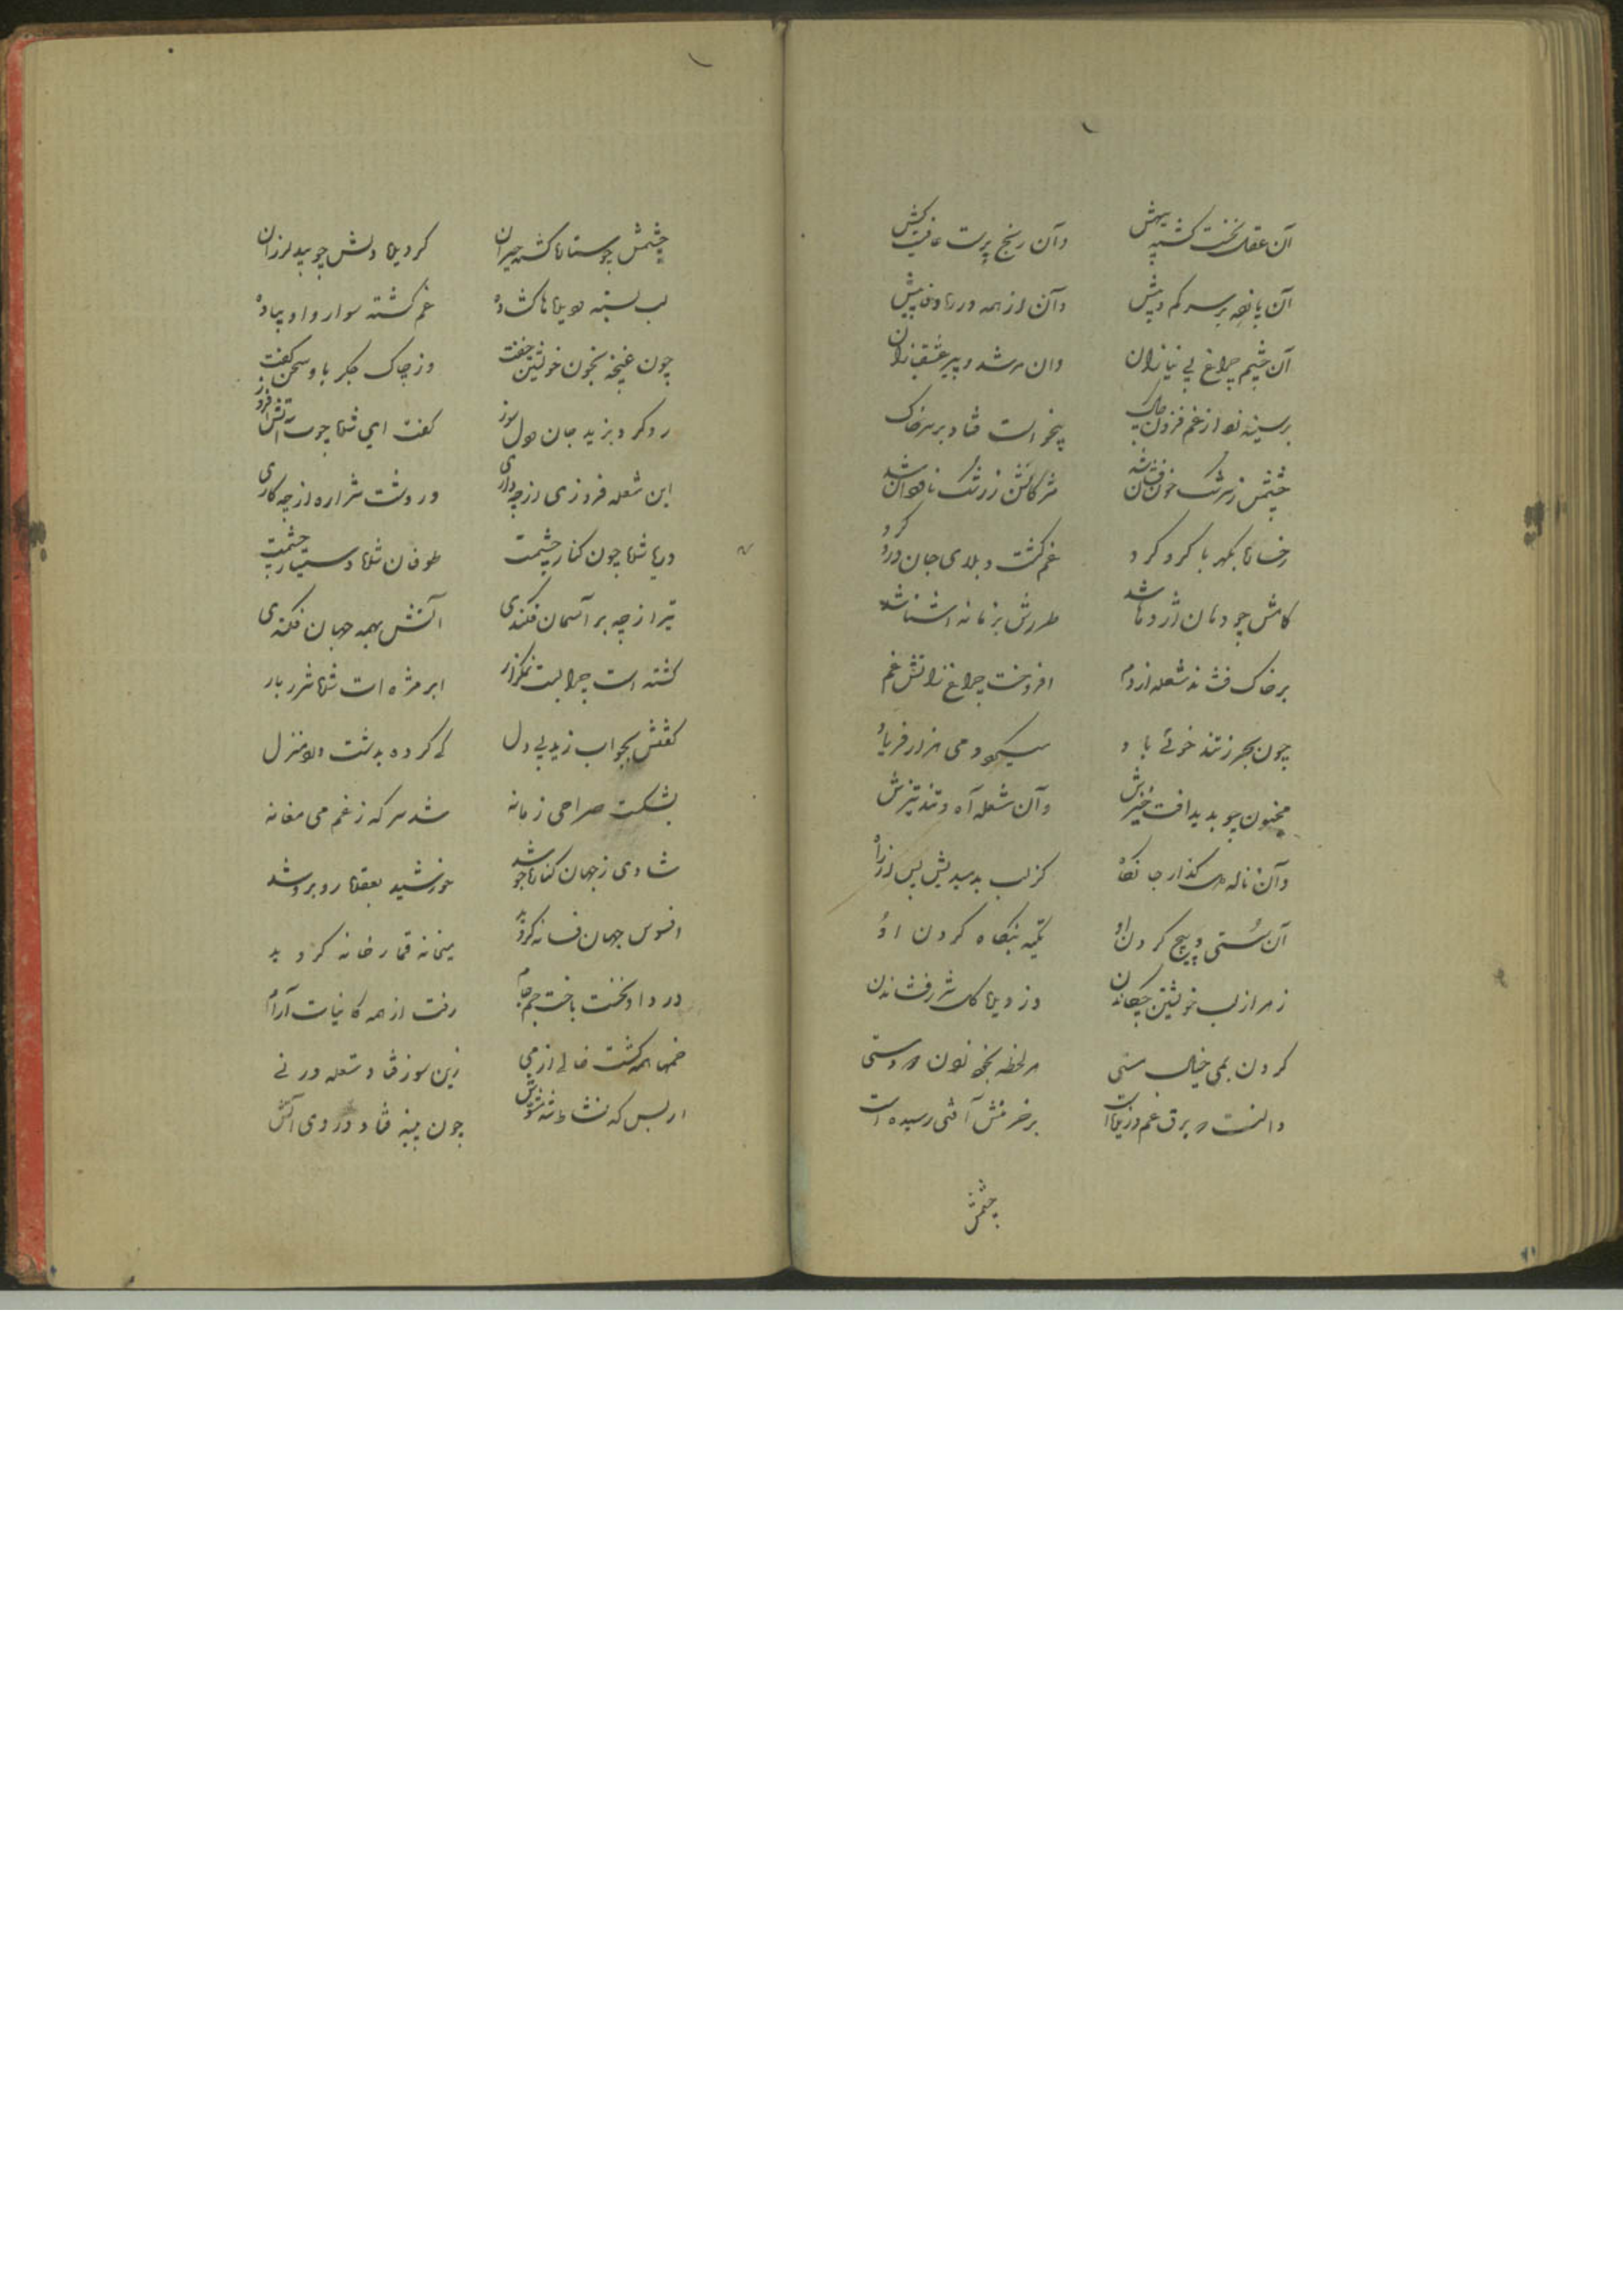 آن عقل نخست کشته بیهش
وآن رنج پرست عافیت کش
آن پا نهد بر سر کم و بیش
وآن از همه در ره وفا پیش
آن چشم چراغ بی نیازان
وان مرشد و پیر عشقبازان
بر سینه از غم فزون چاک
بیخواست فتاد بر سر خاک
چشمش زسرشک خون فشان شد
مژگانش ز رشک ناودان شد
غم گشت و بلای جان درد
کامش چو دهان اژدها شد
بر خاک فشاند شعله از دم
افروخت چراغ زآتش غم
چون بحر زتند خوئی باد
میکرد همی هزار فریاد
مجنون چو بدید افت خیزش
وآن شعله آه و تند تیزش
وآن ناله گذار جانکاه
کز لب برسید پیش پس از راه
آن سستی و پیچ کردن او
تکیه بنگاه کردن او
زهر از لب خویشتن چکاندن
وز دیده شرر فشاندن
کردن بمی خیال مستی
هر لحظه بخود
دانست برق غم
بر خرمنش آتشی رسیده است
چشمش
چشمش چو ستاره گشته حیران
گردیده دلش چو بید لرزان
لب بسته
غم گشته سوار و او پیاده
چون غنچه بخون خویشتن خفت
وز چاک جگر باو سخن گفت
رو کرد بزید جان دل سوز
گفت ای شده چوب آتش افروز
این شعله فروزی از چه داری
در دشت شراره از چه کاری
دریا شده چون کنار چشمت
طوفان شده چشمت
تیر از چه بر آسمان فکندی
آتش بهمه جهان فکندی
گشته است چرا لبت نمکزار
ابر مژه ات شده شرر بار
گفتش بجواب زید بی دل
کی کرده بدشت منزل
بشکست صراحی زمانه
شد سرکه زغم می مغانه
شادی زجهان کناره جو شد
خورشید بعقده روبرو شد
افسوس جهان فسانه گردید
میخانه قمارخانه گردید
دردا و نخست باخت جم جام
رفت از همه کاینات آرام
خمها همه گشت خالی از می
زین سوز فتاد شعله در نی
از بس که نشاط شد مشوش
چون پنبه فتاد در وی آتش